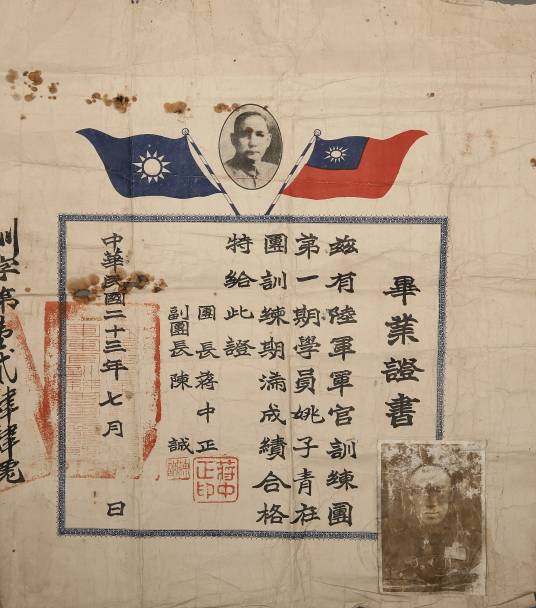 畢業證書
茲有陸軍軍官訓練團
第一期學員姚子青在
團訓練期滿成績合格
特給此證
團長蔣中正
副團長陳誠
蔣中正印
中華民國二十三年七月 日
訓字第壹貳肆肆號